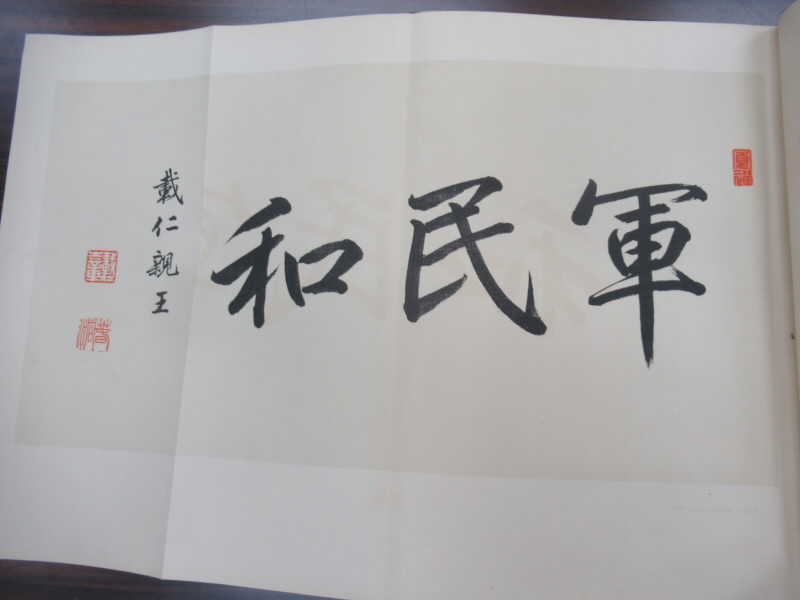 軍民和
載仁親王